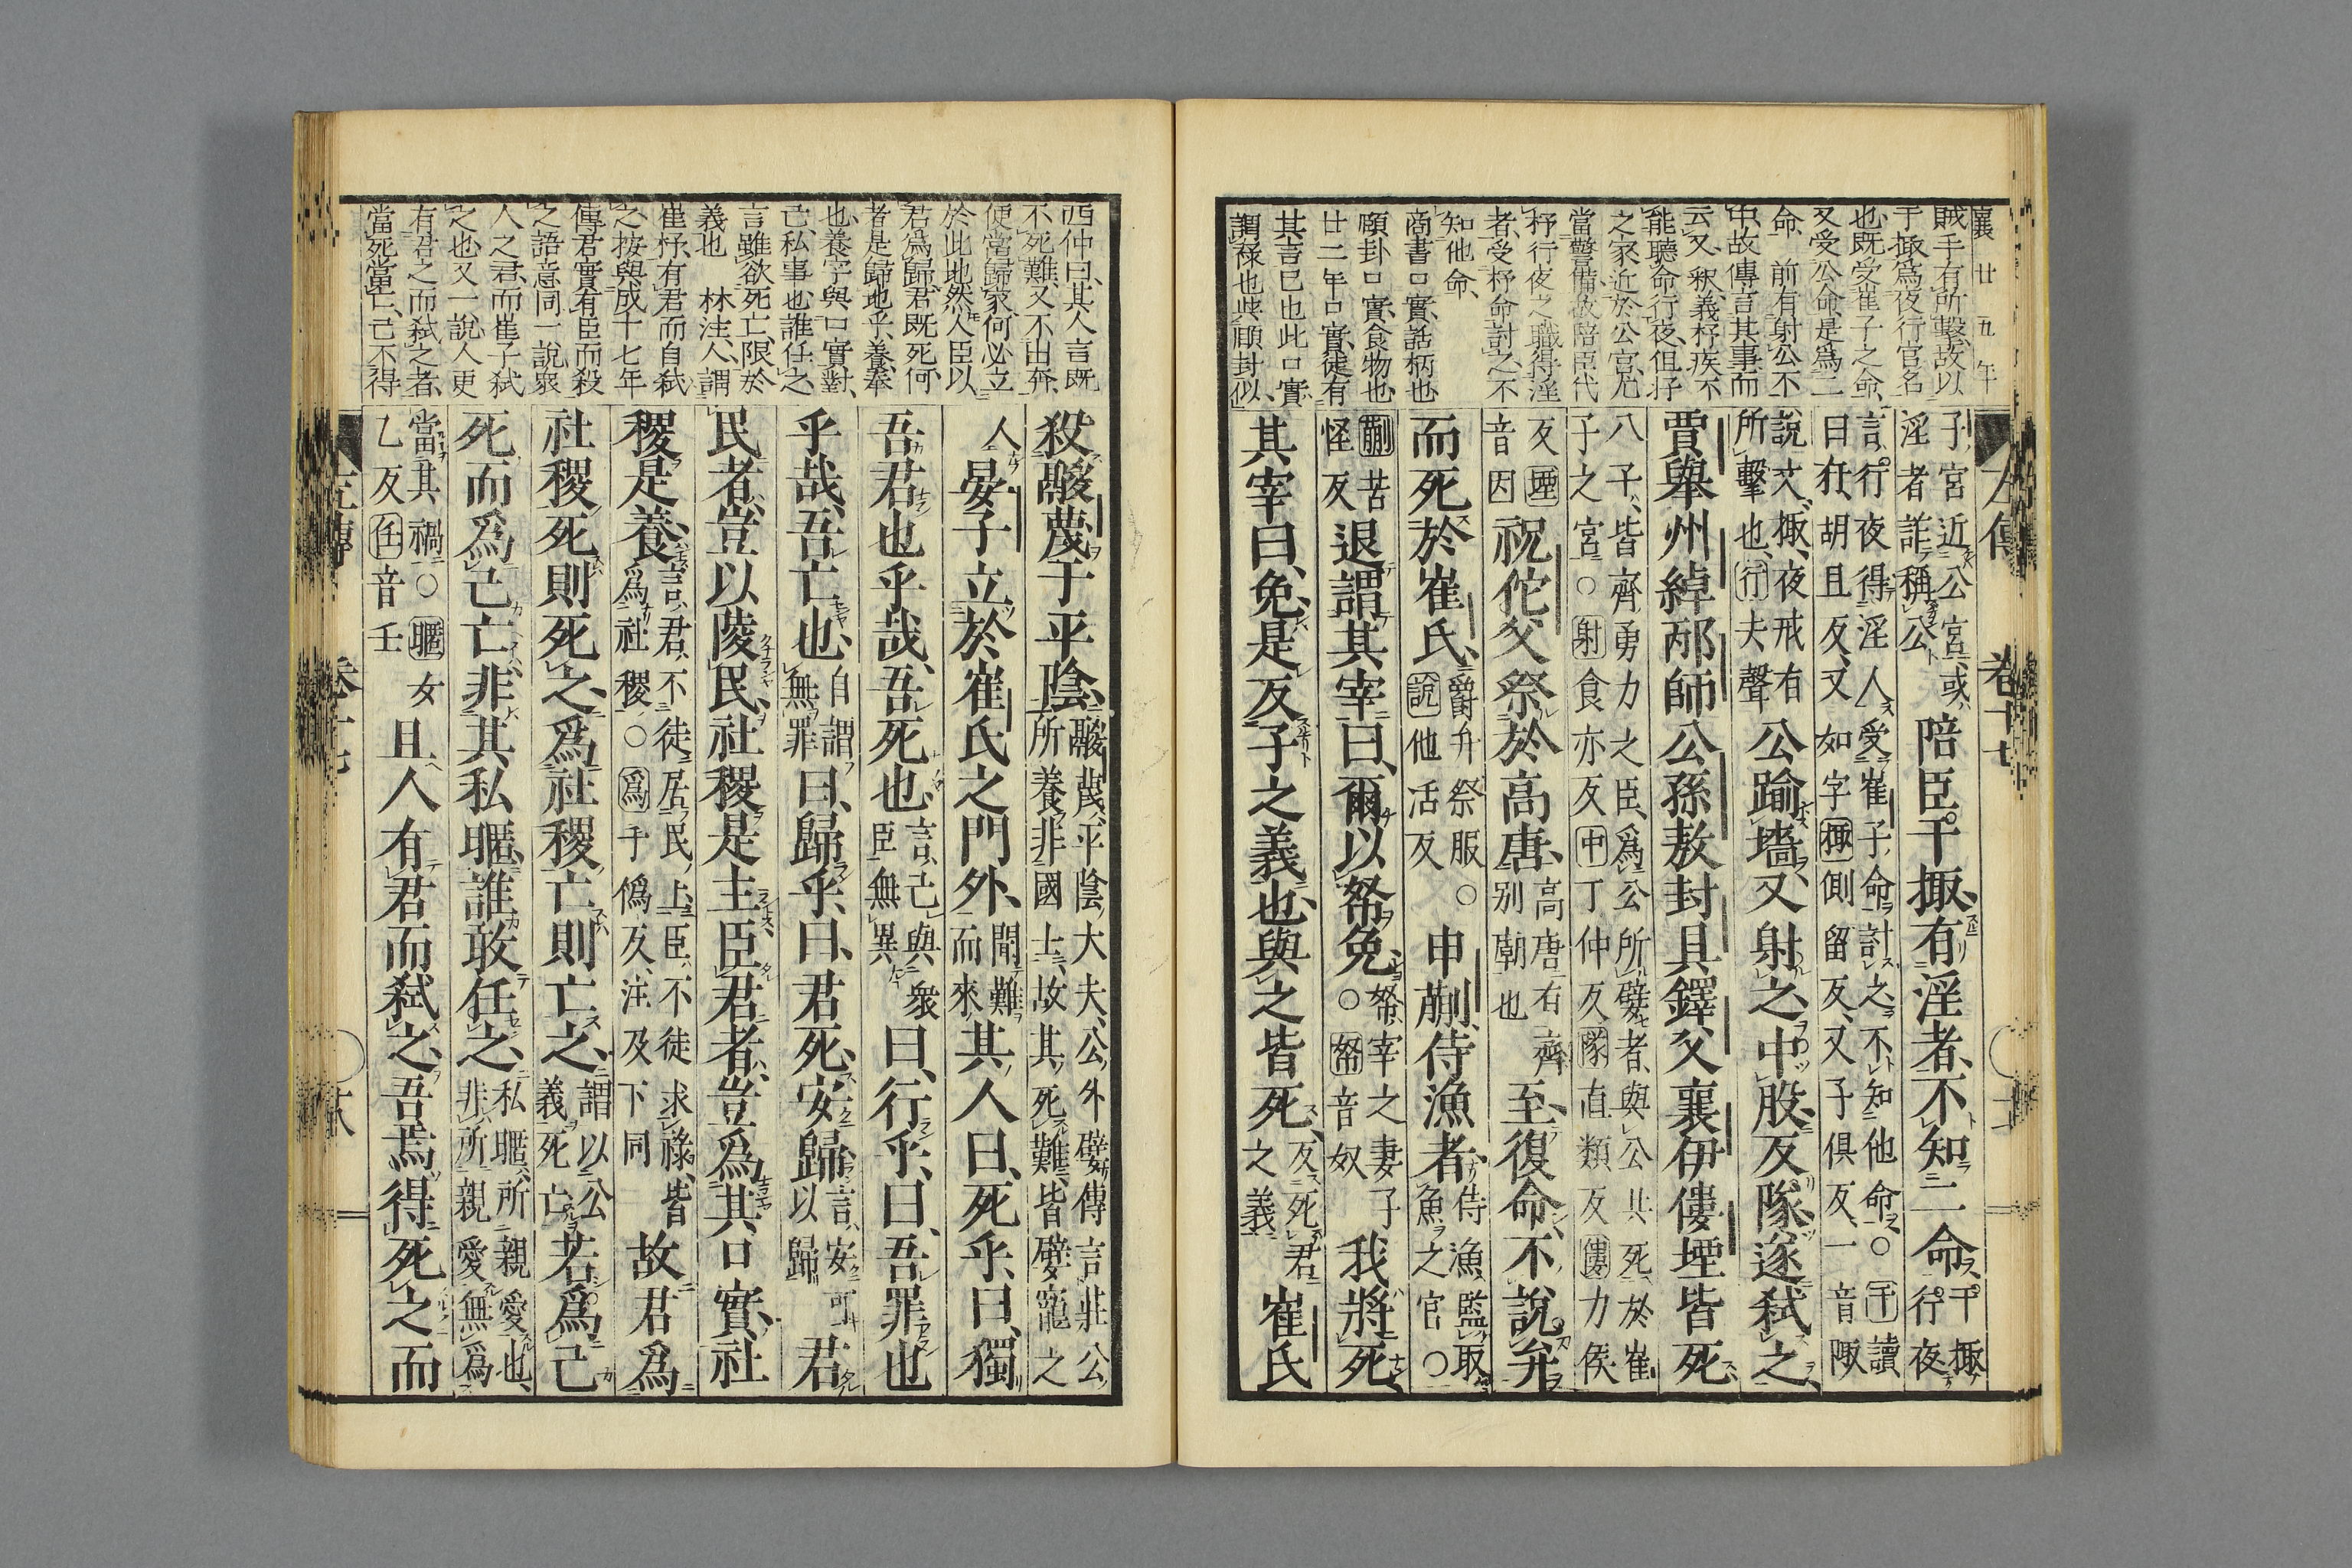 襄廿五年
賊手有所擊故以
于掫爲夜行官名
也既受崔子之命
又受公命是爲二
命　前有射公不
中故傳言其事而
云又　釈義杼疾不
能聽命行夜但杼
之家近於公宮尤
當警備故陪臣代
杼行夜之職得淫
者受杼命討之不
知他命
商書口實話柄也
頤卦口實食物也
廿二年口實徒有
其言已也此口實
謂祿也與頤卦似
左傳　卷十七
子宮近公宮或淫者詐稱公陪臣干掫有淫者不知二命干掫行夜
言行夜得淫人受崔子命討之不知他命○干讀
曰犴胡旦反又如字掫側留反又子俱反一音陬
說文掫夜戒有所擊也行夫聲公踰墻又射之中股反隊遂弒之
賈舉州綽邴師公孫敖封具鐸父襄伊僂堙皆死
八子皆齊勇力之臣爲公所嬖者與公共死於崔
子之宮○射食亦反中丁仲反隊直類反僂力侯
反堙音因祝佗父祭於高唐高唐有齊別廟也至復命不說弁
而死於崔氏爵弁祭服○說他活反申蒯侍漁者侍漁監取魚之官○
蒯苦怪反退謂其宰曰爾以帑免帑宰之妻子○帑音奴我將死
其宰曰免是反子之義也與之皆死反死君之義崔氏
西仲曰其人言既
不死難又不出奔
便當歸家何必立
於此地然人臣以
君爲歸君既死何
者是歸地乎養奉
也養字與口實對
己私事也誰任之
言雖欲死亡限於
義也　林注人謂
崔杼有君而自弒
之按與成十七年
傳君實有臣而殺
之語意同一說衆
人之君而崔子弒
之也又一說人更
有君之而弒之者
當死當亡己不得
殺鬷蔑于平陰鬷蔑平陰大夫公外嬖傳言莊公所養非國士故其死難皆嬖寵之
人晏子立於崔氏之門外聞難而來其人曰死乎曰獨
吾君也乎哉吾死也言己與衆臣無異曰行乎曰吾罪也
乎哉吾亡也自謂無罪曰歸乎曰君死安歸言安可以歸君
民者豈以陵民社稷是主臣君者豈爲其口實社
稷是養言君不徒居民上臣不徒求祿皆爲社稷○爲于僞反注及下同故君爲
社稷死則死之爲社稷亡則亡之謂以公義死亡若爲己
死而爲己亡非其私暱誰敢任之私暱所親愛也非所親愛無爲
當其禍○暱女乙反任音壬且人有君而弒之吾焉得死之而
左傳　卷十七　十八